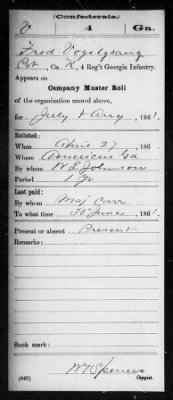 (Confederate.)
V 4 Ga.
Fred Vogelgsang
Pvt, Co. K, 4 Reg't Georgia Infantry.
Appears on
Company Muster Roll
of the organization named above,
for July & Aug, 1861
Enlisted:
When April 27, 186
Where Americus Ga
By whom W. L. Johnson
Period 1 Yr
Last paid:
By whom Maj Carr
To what time 30 June, 1861.
Present or absent Present
Remarks:
Book mark:
(642) Copyist.